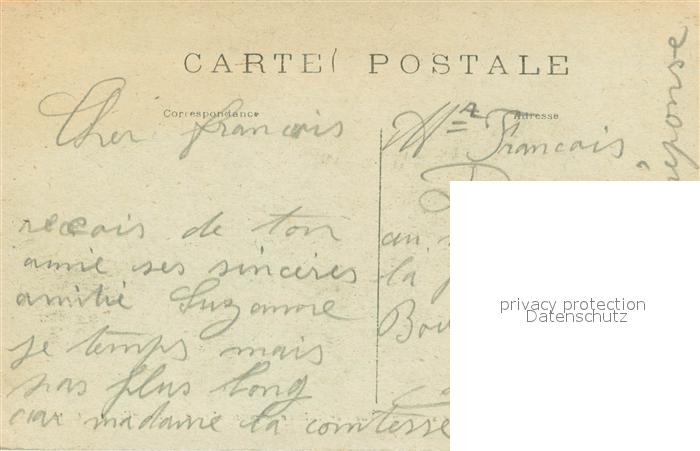 CARTE POSTALE
Correspondance
Adresse
Cher francois
recois de ton
amie ses sincères
amitié Suzanne
je temps mais
pas plus long
car madame la comtesse
Mr Francois
au
la
réponse
privacy protection
Datenschutz